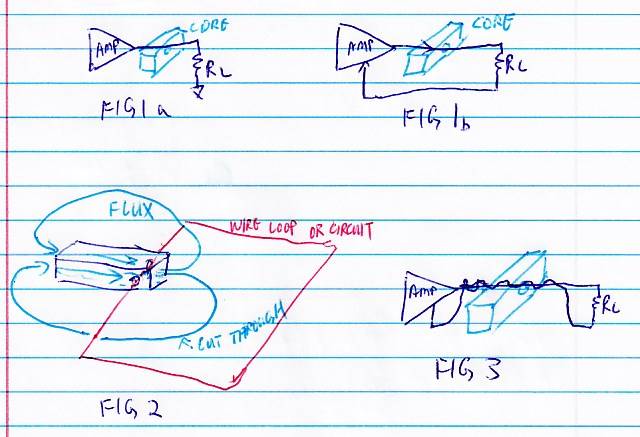 CORE
AMP
RL
FIG 1a
CORE
AMP
RL
FIG 1b
FLUX
WIRE LOOP OR CIRCUIT
CUT THROUGH
FIG 2
AMP
RL
FIG 3